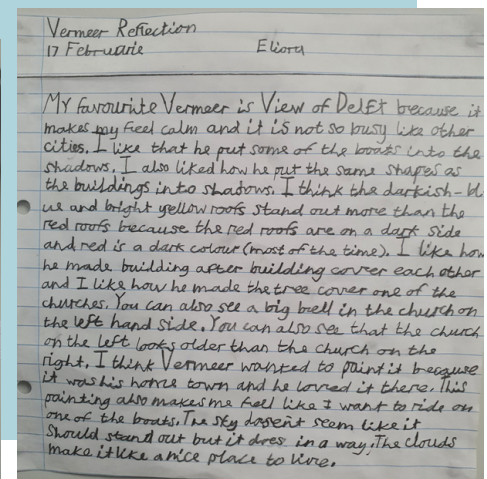 Vermeer Reflection
17 Februarie Eliora
My favourite Vermeer is View of Delft because it
makes my feel calm and it is not so busy like other
cities. I like that he put some of the boats into the
shadows. I also liked how he put the same shapes as
the buildings into shadows. I think the darkish-bl
ue and bright yellow roofs stand out more than the
red roofs because the red roofs are on a dark side
and red is a dark colour (most of the time). I like how
he made building after building cover each other
and I like how he made the tree cover one of the
churches. You can also see a big bell in the church on
the left hand side. You can also see that the church
on the left looks older than the church on the
right. I think Vermeer wanted to paint it because
it was his home town and he loved it there. This
painting also makes me fell like I want to ride on
one of the boats. The sky dosent seem like it
should stand out but it dres in a way. The clouds
make it like a nice place to live.